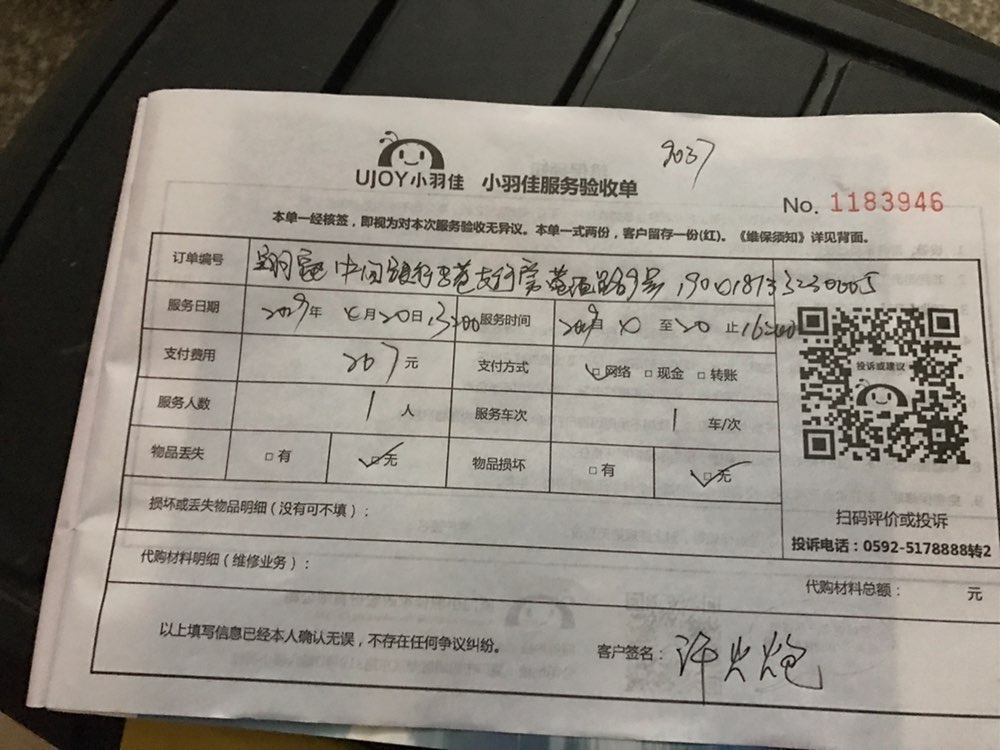 9037
UJOY小羽佳 小羽佳服务验收单
No. 1183946
本单一经核签，即视为对本次服务验收无异议。本单一式两份，客户留存一份(红)。《维保须知》详见背面。
订单编号 中国银行 支行 9号
服务日期 2019年 月20日 13:00 服务时间 2019年 10 至 20 止 16:00
支付费用 207元 支付方式 □网络 □现金 □转账
服务人数 1人 服务车次 1 车/次
物品丢失 □有 □无 物品损坏 □有 □无
投诉或建议
损坏或丢失物品明细（没有可不填）：
扫码评价或投诉
投诉电话：0592-5178888转2
代购材料明细（维修业务）：
代购材料总额： 元
以上填写信息已经本人确认无误，不存在任何争议纠纷。
客户签名：许火炮